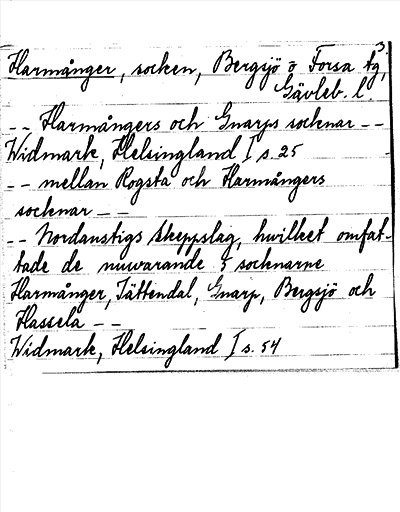 3
Harmånger, socken, Bergsjö o Forsa tg,
Gävleb. l.
-- Harmångers och Gnarps socknar --
Widmark, Helsingland I s. 25
-- mellan Rogsta och Harmångers
socknar --
-- Nordanstigs skeppslag, hwilket omfat-
tade de nuwarande 5 socknarne
Harmånger, Jättendal, Gnarp, Bergsjö och
Hassela --
Widmark, Helsingland I s. 54